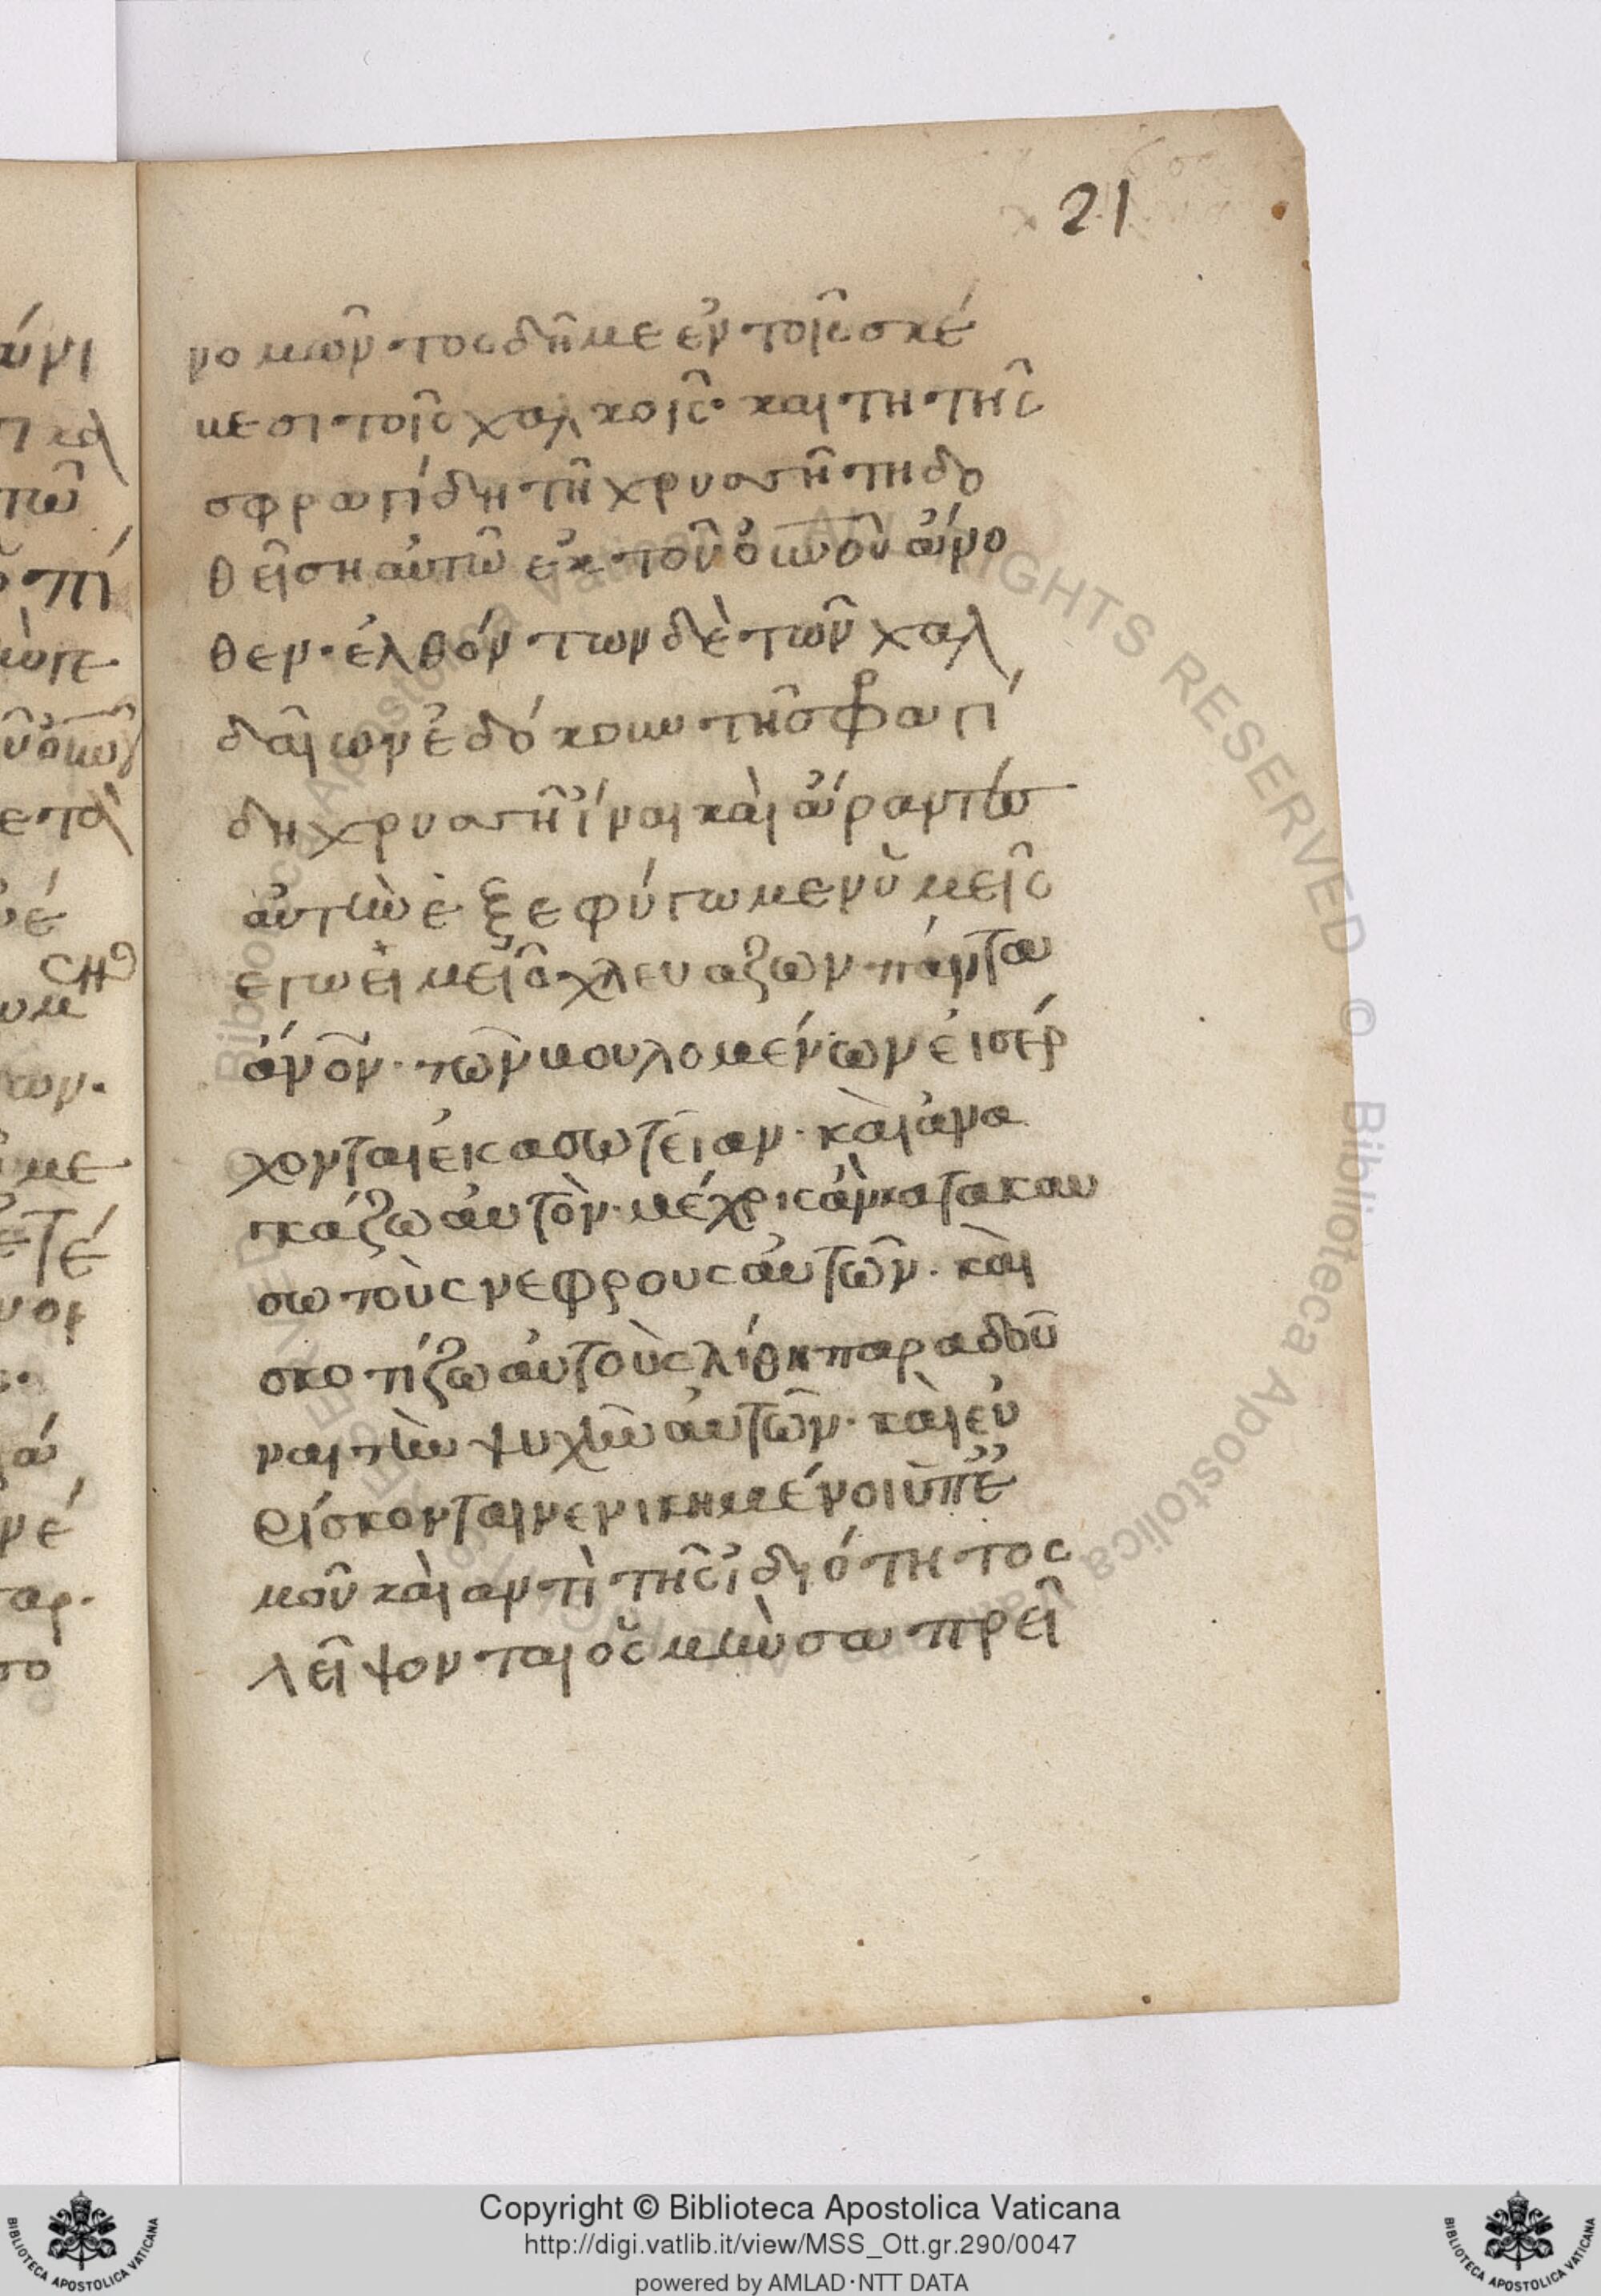 21
νομῶν·τοςδῆμε ἐν τοῖς σκέ
βεσι τοῖς χαλκοῖς· και τη τῆς
σφραγίδη τῆ χρυσῆ τη δο
θεῖση αὐτῶ ἐκ τοῦ θῡ ἄνο
θεν· ἐλθόντων δὲ τῶν χαλ
δαῖων ἐδόκουν τῆ σφραγί
δη χρυσῆ ἶναι καὶ ἄραντ(ες)
αὐτὴν ἐξεφύγωμεν ὑμεῖς
εγω εἰμεῖ ὁ χλευαζων πάντα
ἄν̅ο̅ν· τῶν βουλομένων εἰσέρ
χονται ἐκ ασωτείαν· καὶ ἀνα
γκάζω αὐτὸν· μέχρις ἂν κατακαυ
σω τοὺς νεφρους αὐτῶν· καὶ
σκοτίζω αὐτοὺς λίθη παραδοῦ
ναι τὴν ψυχὴν αὐτῶν· καὶ εὑ
ρίσκονται νενικημένοι ὑπ' ἐ
μοῦ καὶ αντὶ τῆς ἰδιότητος
λεῖψονται ὃς μὴν σαπρεῖ
Copyright © Biblioteca Apostolica Vaticana
http://digi.vatlib.it/view/MSS_Ott.gr.290/0047
powered by AMLAD·NTT DATA